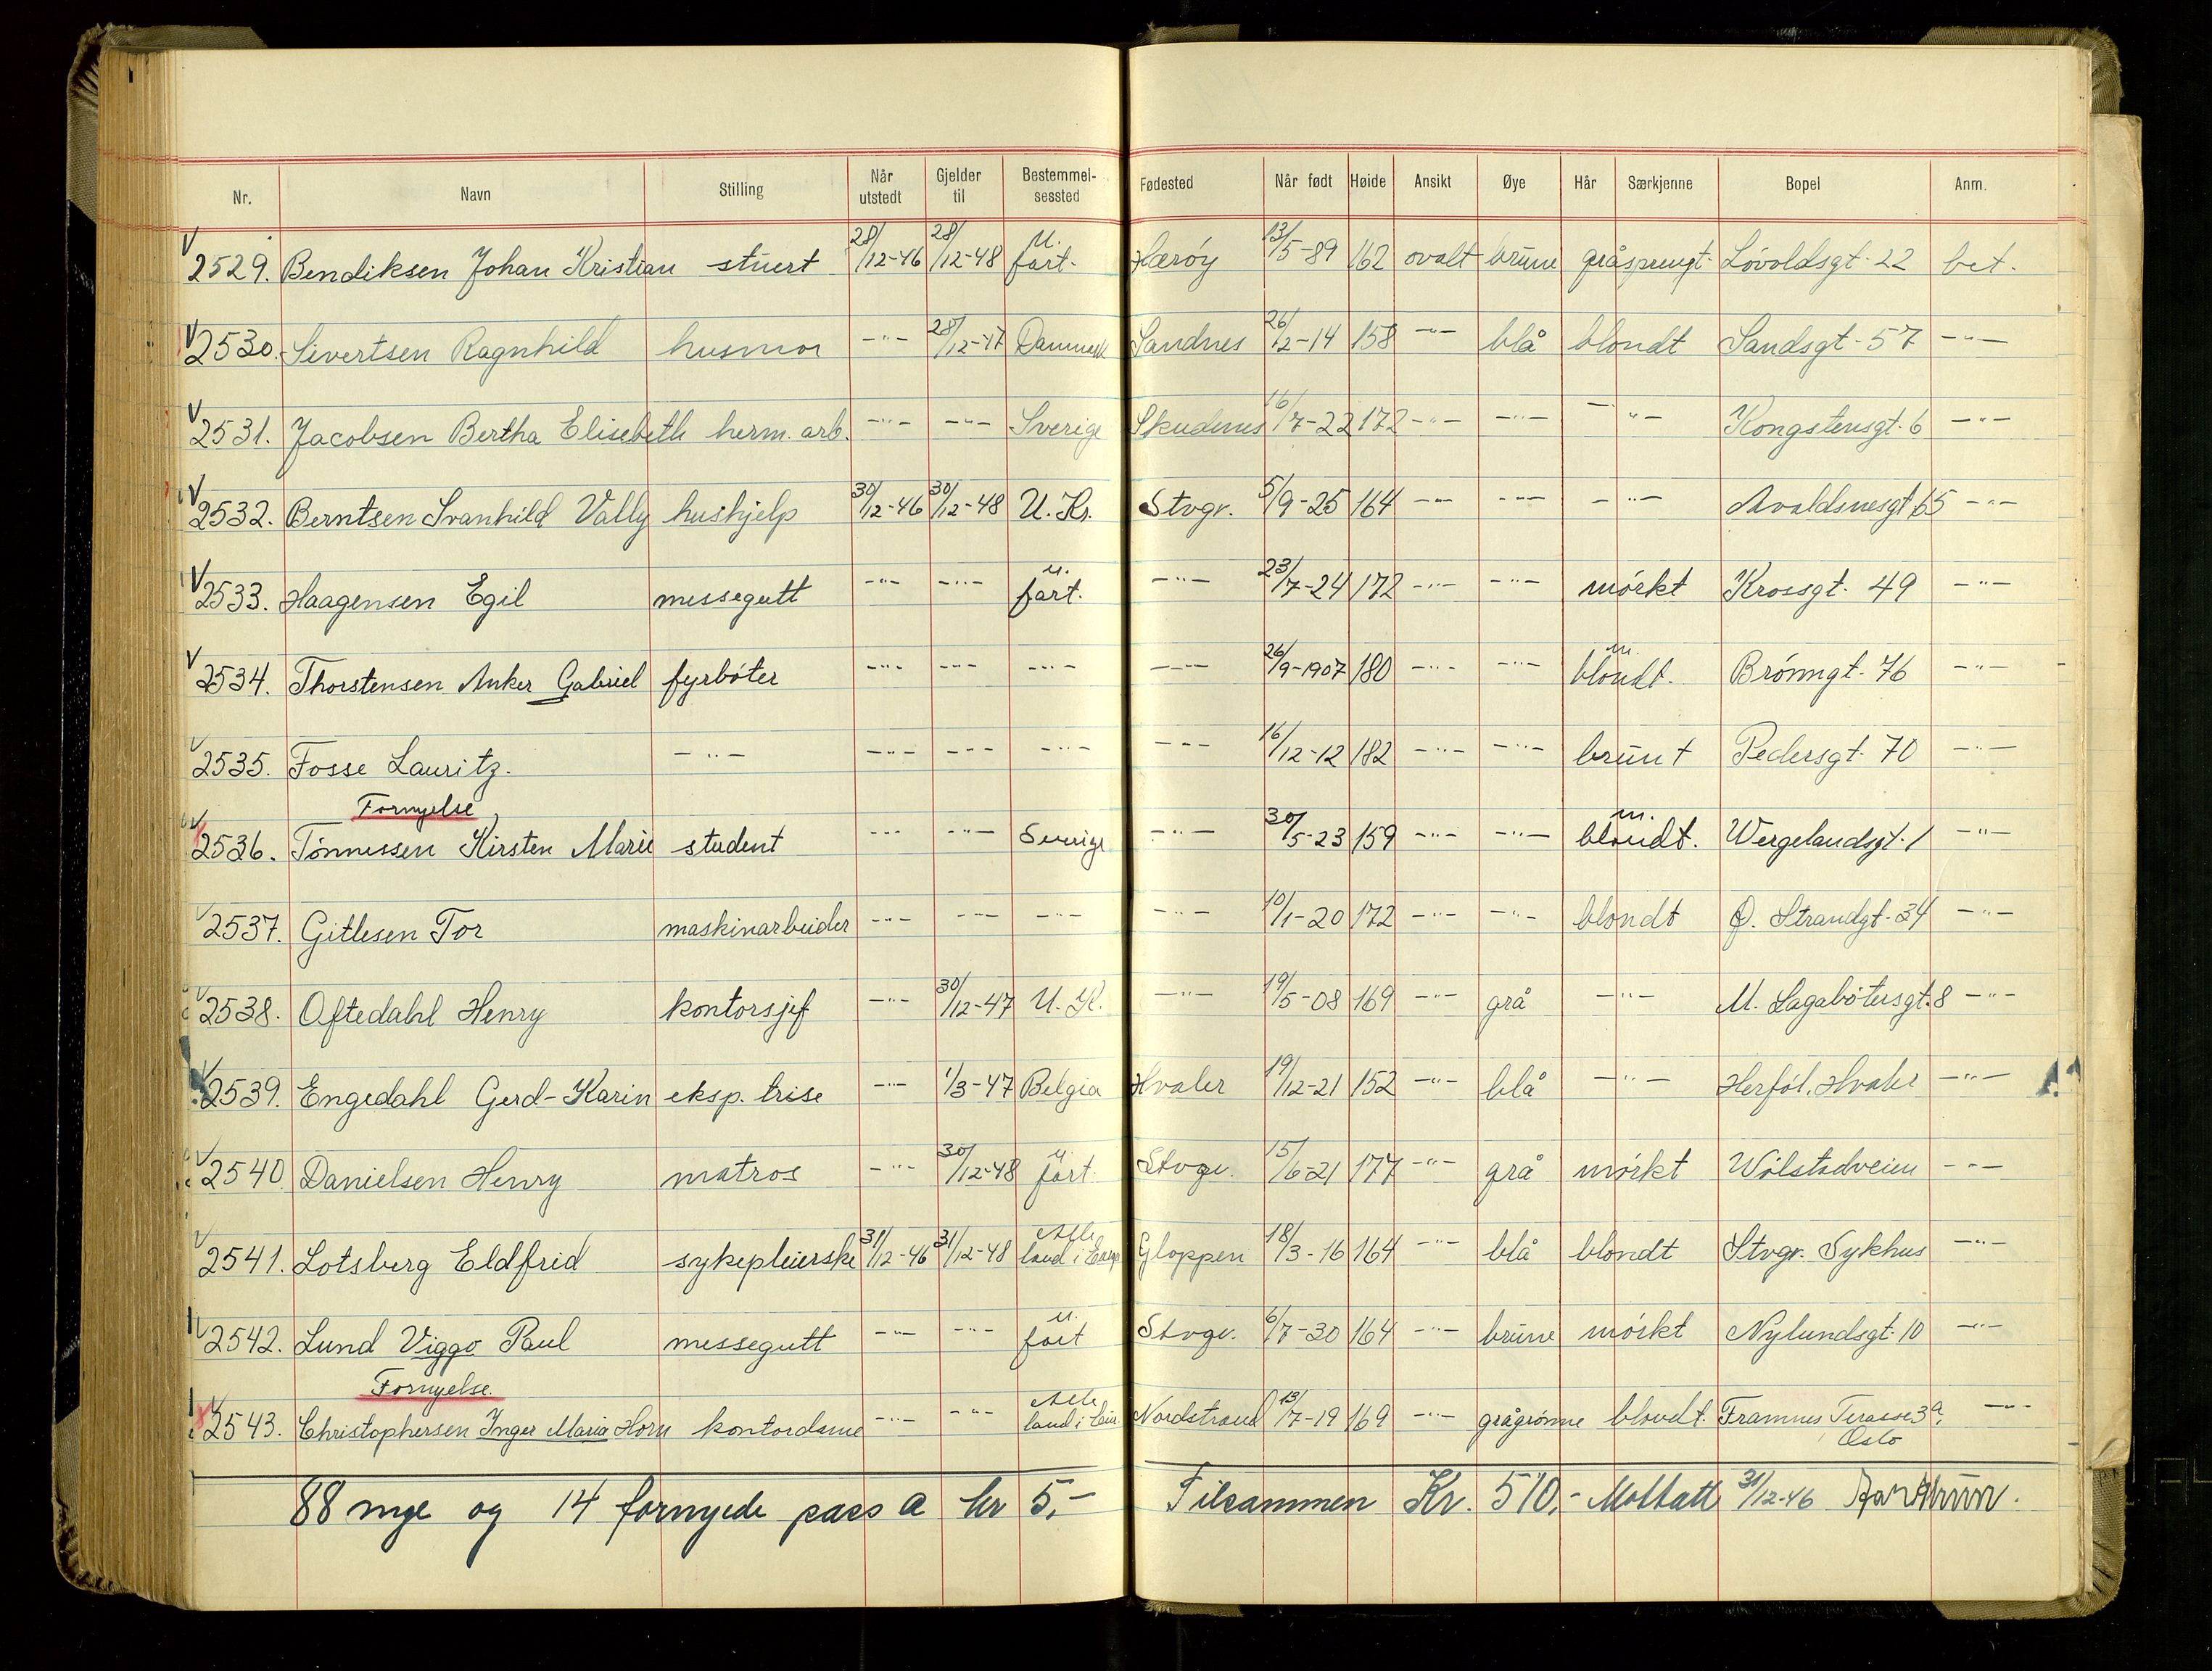 Nr. Navn Stilling Når utstedt Gjelder til Bestemmel-sessted Fødested Når født Høide Ansikt Øye Hår Særkjenne Bopel Anm.
2529. Bendiksen Johan Kristian stuert 28/12-46 28/12-48 u. fart. Herøy 13/5-89 162 ovalt brune gråsprengt Løvoldsgt. 22 bet.
2530. Sivertsen Ragnhild husmor -"- 28/12-47 Danmark Sandnes 26/2-14 158 -"- blå blondt Sandsgt. 57 -"-
2531. Jacobsen Bertha Elisebeth herm. arb. -"- -"- Sverige Skudenes 16/7-22 172 -"- -"- -"- Kongstensgt. 6 -"-
2532. Berntsen Svanhild Vally hushjelp 30/12-46 30/12-48 U. K. Stvgr. 5/9-25 164 -"- -"- -"- Avaldsnesgt 65 -"-
2533. Haagensen Egil messegutt -"- -"- u. fart. -"- 23/7-24 172 -"- -"- mørkt Krossgt. 49 -"-
2534. Thorstensen Anker Gabriel fyrbøter -"- -"- -"- -"- 26/9-1907 180 -"- -"- m. blondt. Brønngt. 76 -"-
2535. Fosse Lauritz. -"- -"- -"- -"- -"- 16/12-12 182 -"- -"- brunt Pedersgt. 70 -"-
Fornyelse
2536. Tønnessen Kirsten Marie student -"- -"- Sverige -"- 30/5-23 159 -"- -"- m. blondt. Wergelandsgt. 1 -"-
2537. Gitlesen Tor maskinarbeider -"- -"- -"- -"- 10/1-20 172 -"- -"- blondt Ø. Strandgt. 34 -"-
2538. Oftedahl Henry kontorsjef -"- 30/12-47 U. K. -"- 19/5-08 169 -"- grå -"- M. Lagabøtersgt. 8 -"-
2539. Engedahl Gerd-Karin eksp. trise -"- 1/3-47 Belgia Hvaler 19/12-21 152 -"- blå -"- Herføl, Hvaler -"-
2540. Danielsen Henry matros -"- 30/12-48 u. fart. Stvgr. 15/6-21 177 -"- grå mørkt Wølstadveien -"-
2541. Lotsberg Eldfrid sykepleierske 31/12-46 31/12-48 Alle land i Europ Gloppen 18/3-16 164 -"- blå blondt Stvgr. Sykhus -"-
2542. Lund Viggo Paul messegutt -"- -"- u. fart Stvgr. 6/7-30 164 -"- brune mørkt Nylundsgt. 10 -"-
Fornyelse.
2543. Christophersen Inger Maria Horn kontordame -"- -"- Alle land i Eur. Nordstrand 13/7-19 169 -"- grågrønne blondt. Framnes Terasse 3a, Oslo -"-
88 nye og 14 fornyede pass a kr 5,- Tilsammen Kr. 510,- Mottatt 31/12-46